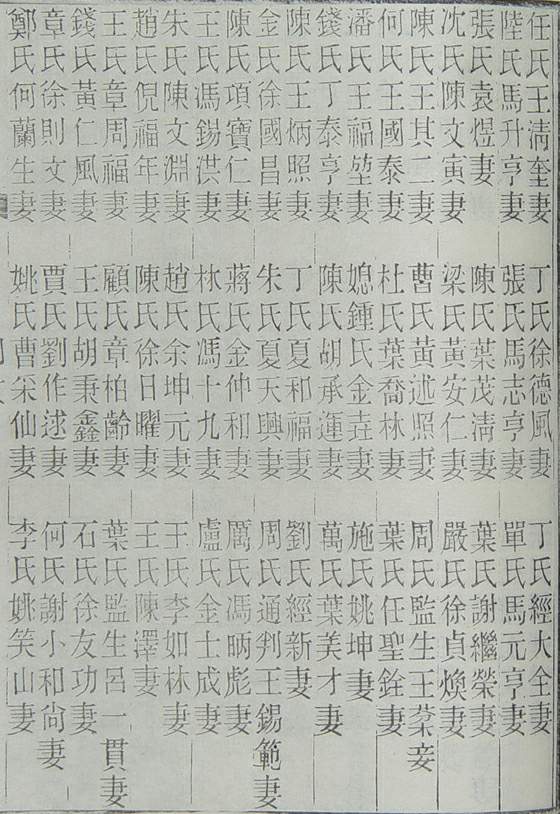 任氏王淸奎妻 丁氏徐德風妻 丁氏經大全妻
陸氏馬升亨妻 張氏馬志亨妻 單氏馬元亨妻
張氏袁煜妻 陳氏葉茂淸妻 葉氏謝繼榮妻
沈氏陳文寅妻 梁氏黃安仁妻 嚴氏徐貞煥妻
陳氏王其二妻 曹氏黃述照妻 周氏監生王棻妾
何氏王國泰妻 杜氏葉喬林妻 葉氏任聖銓妻
潘氏王福堃妻 媳鍾氏金垚妻 施氏姚坤妻
錢氏丁泰亨妻 陳氏胡承運妻 萬氏葉美才妻
陳氏王炳照妻 丁氏夏和福妻 劉氏經新妻
金氏徐國昌妻 朱氏夏天興妻 周氏通判王錫範妻
陳氏項寶仁妻 蔣氏金仲和妻 厲氏馮昞彪妻
王氏馮錫洪妻 林氏馮十九妻 盧氏金士成妻
朱氏陳文淵妻 趙氏余坤元妻 王氏李如林妻
趙氏倪福年妻 陳氏徐日曜妻 王氏陳澤妻
王氏章周福妻 顧氏章柏齡妻 葉氏監生呂一貫妻
錢氏黃仁風妻 王氏胡秉鑫妻 石氏徐友功妻
章氏徐則文妻 賈氏劉作逑妻 何氏謝小和尙妻
鄭氏何蘭生妻 姚氏曹采仙妻 李氏姚笑山妻